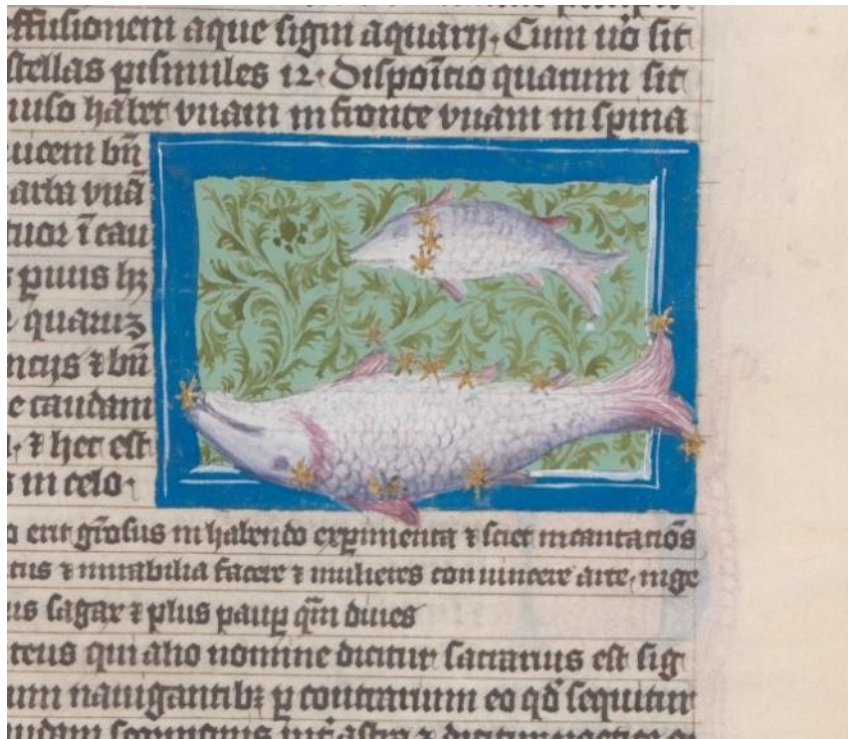 effusionem aque signi aquarij. Cum uo sit
stellas pisimiles 12. Dispoitio quarum sit
iuso habet vnam in fronte vnam in spina
ucem bn
arta vna
tuor i cau
puus hz
quaruz
ncijs & bn
e caudam
& hec est
s in celo.
o erit grosus in habendo experimenta & sciet incantatios
tus & mirabilia facere & mulieres conuincere arte nige
us sagax & plus paup qm diues
teus qui alio nomine dicitur sacrarius est sig
um nauigantibz p contrarium eo qd sequitur